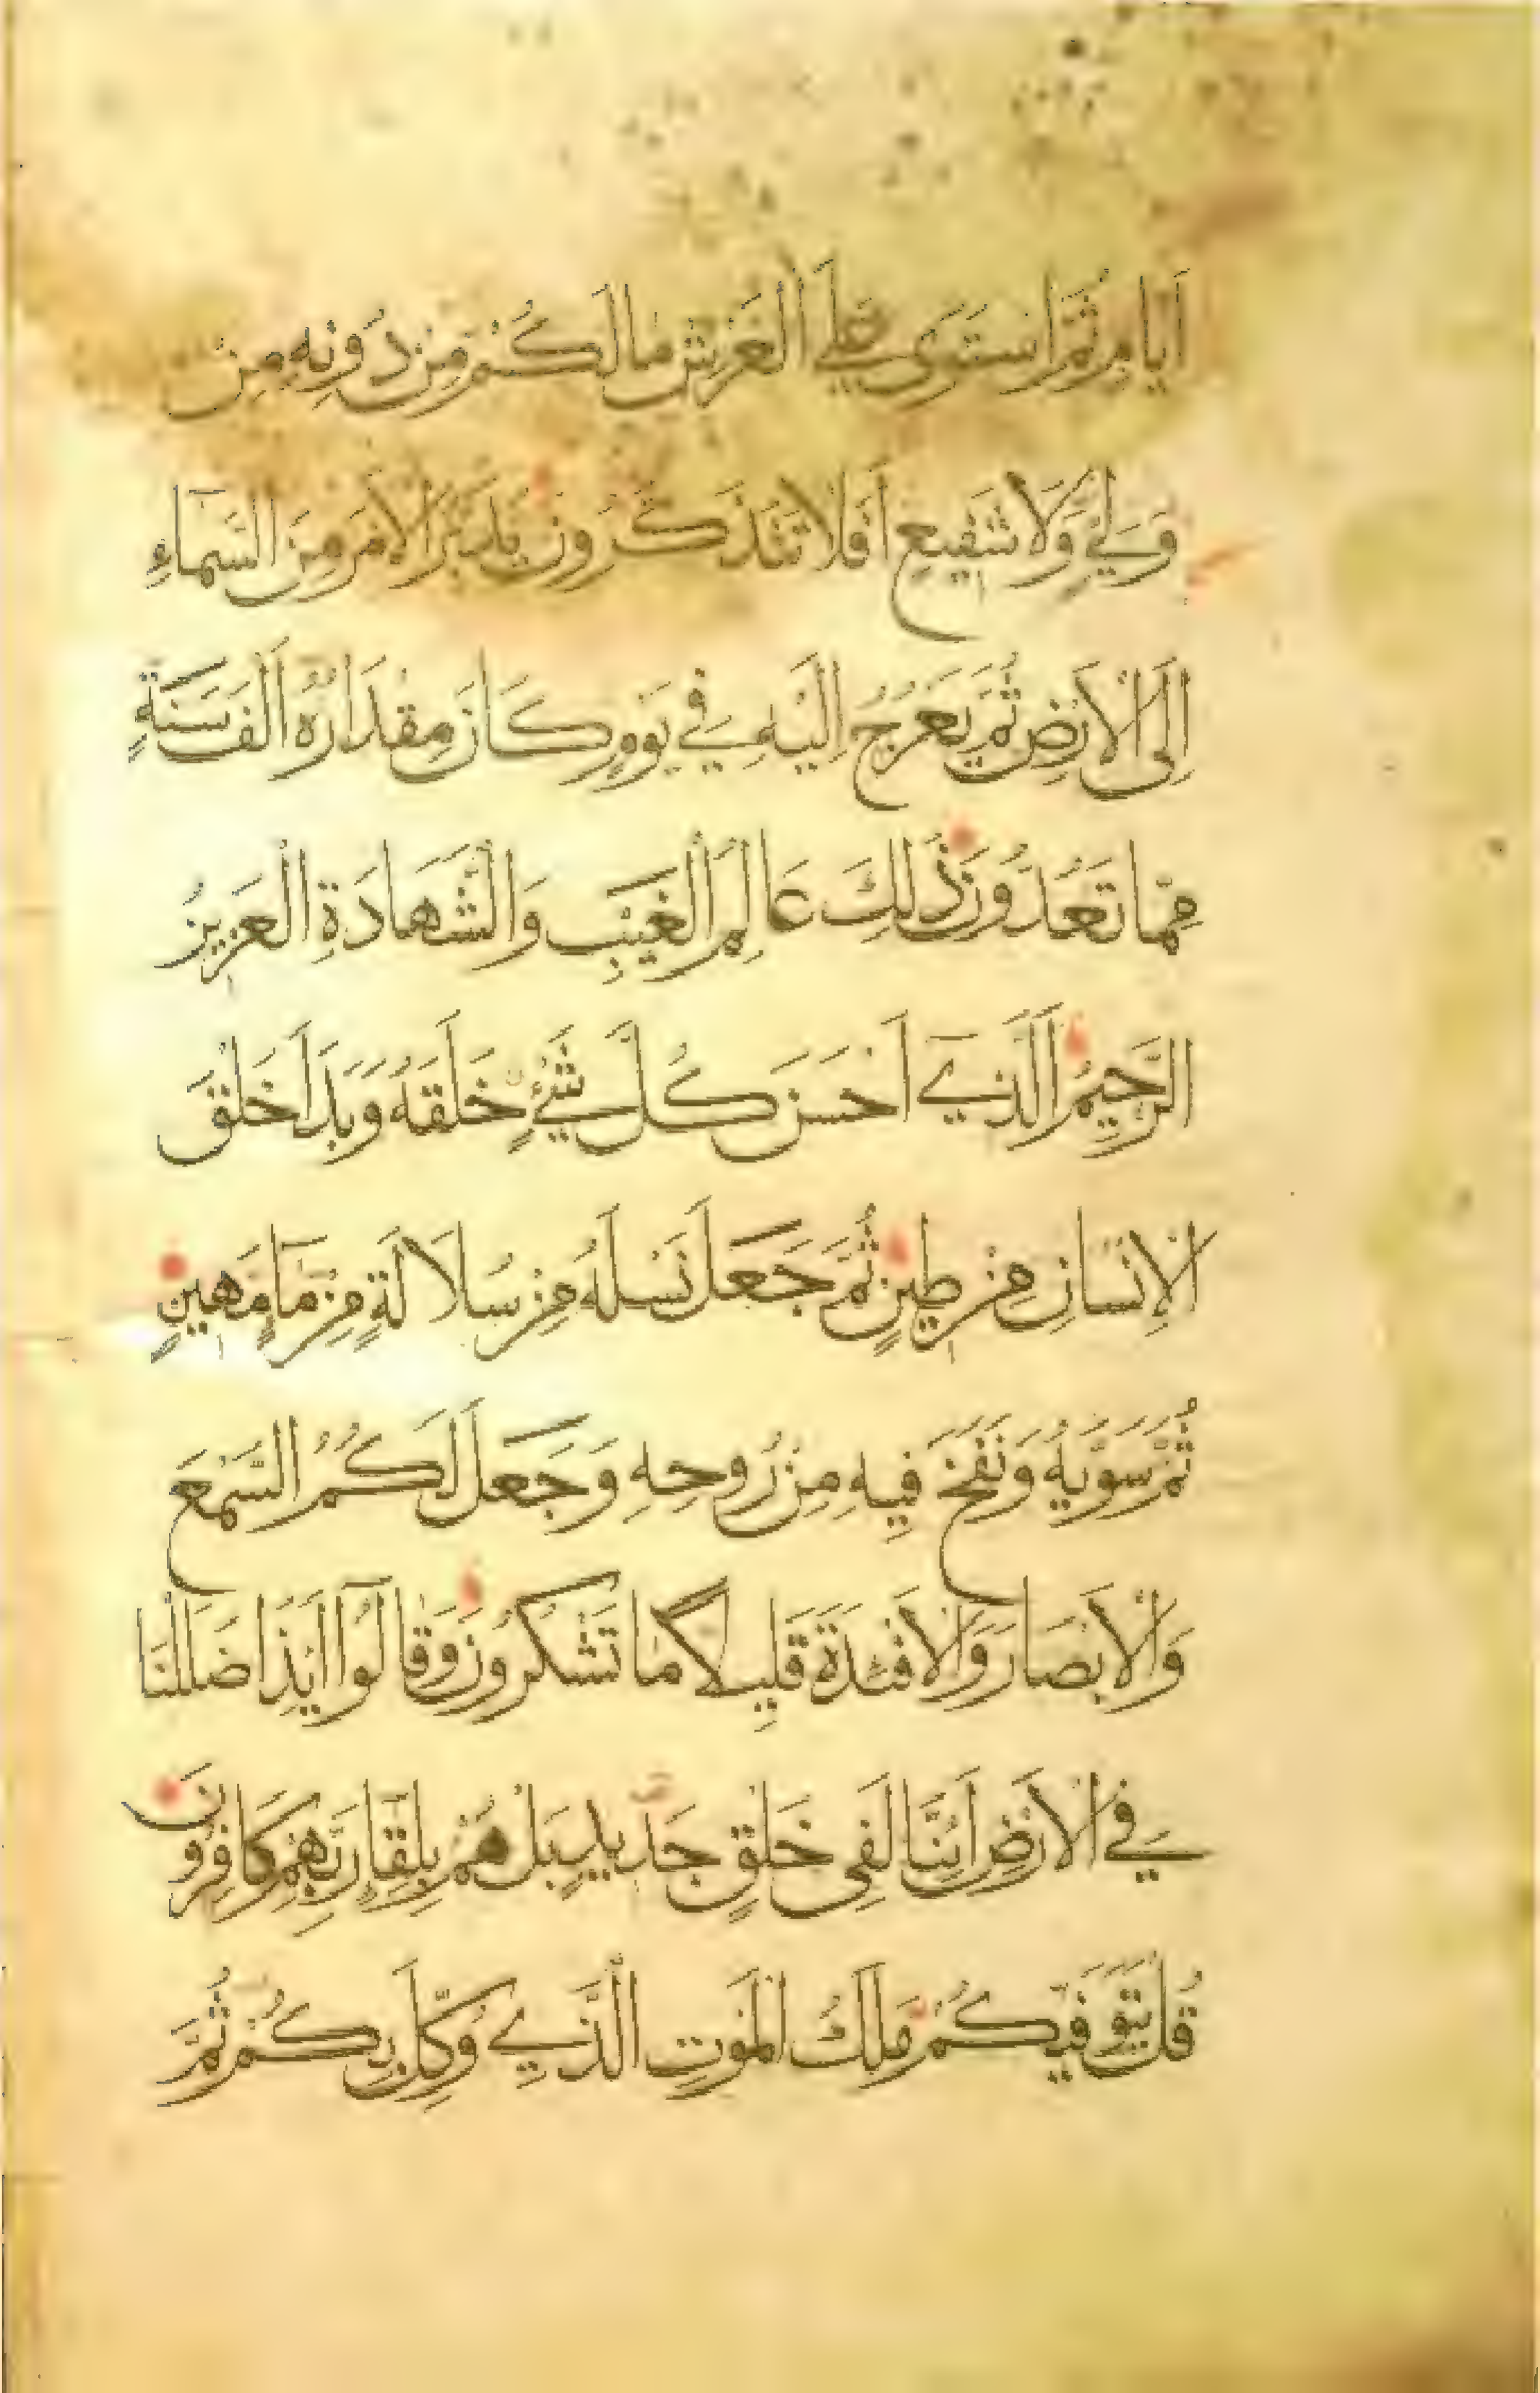 اَيَّامٍ ثُمَّ اسْتَوَى عَلَى الْعَرْشِ مَا لَكُمْ مِنْ دُونِهِ مِنْ
وَلِيٍّ وَلَا شَفِيعٍ اَفَلَا تَتَذَكَّرُونَ يُدَبِّرُ الْاَمْرَ مِنَ السَّمَاءِ
اِلَى الْاَرْضِ ثُمَّ يَعْرُجُ اِلَيْهِ فِي يَوْمٍ كَانَ مِقْدَارُهُ اَلْفَ سَنَةٍ
مِمَّا تَعُدُّونَ ذَلِكَ عَالِمُ الْغَيْبِ وَالشَّهَادَةِ الْعَزِيزُ
الرَّحِيمُ اَلَّذِي اَحْسَنَ كُلَّ شَيْءٍ خَلَقَهُ وَبَدَاَ خَلْقَ
الْاِنْسَانِ مِنْ طِينٍ ثُمَّ جَعَلَ نَسْلَهُ مِنْ سُلَالَةٍ مِنْ مَآءٍ مَهِينٍ
ثُمَّ سَوَّيهُ وَنَفَخَ فِيهِ مِنْ رُوحِهِ وَجَعَلَ لَكُمُ السَّمْعَ
وَالْاَبْصَارَ وَالْاَفْئِدَةَ قَلِيلًا مَا تَشْكُرُونَ وَقَالُوا اَئِذَا ضَلَلْنَا
فِي الْاَرْضِ اَئِنَّا لَفِي خَلْقٍ جَدِيدٍ بَلْ هُمْ بِلِقَآءِ رَبِّهِمْ كَافِرُونَ
قُلْ يَتَوَفَّيكُمْ مَلَكُ الْمَوْتِ الَّذِي وُكِّلَ بِكُمْ ثُمَّ